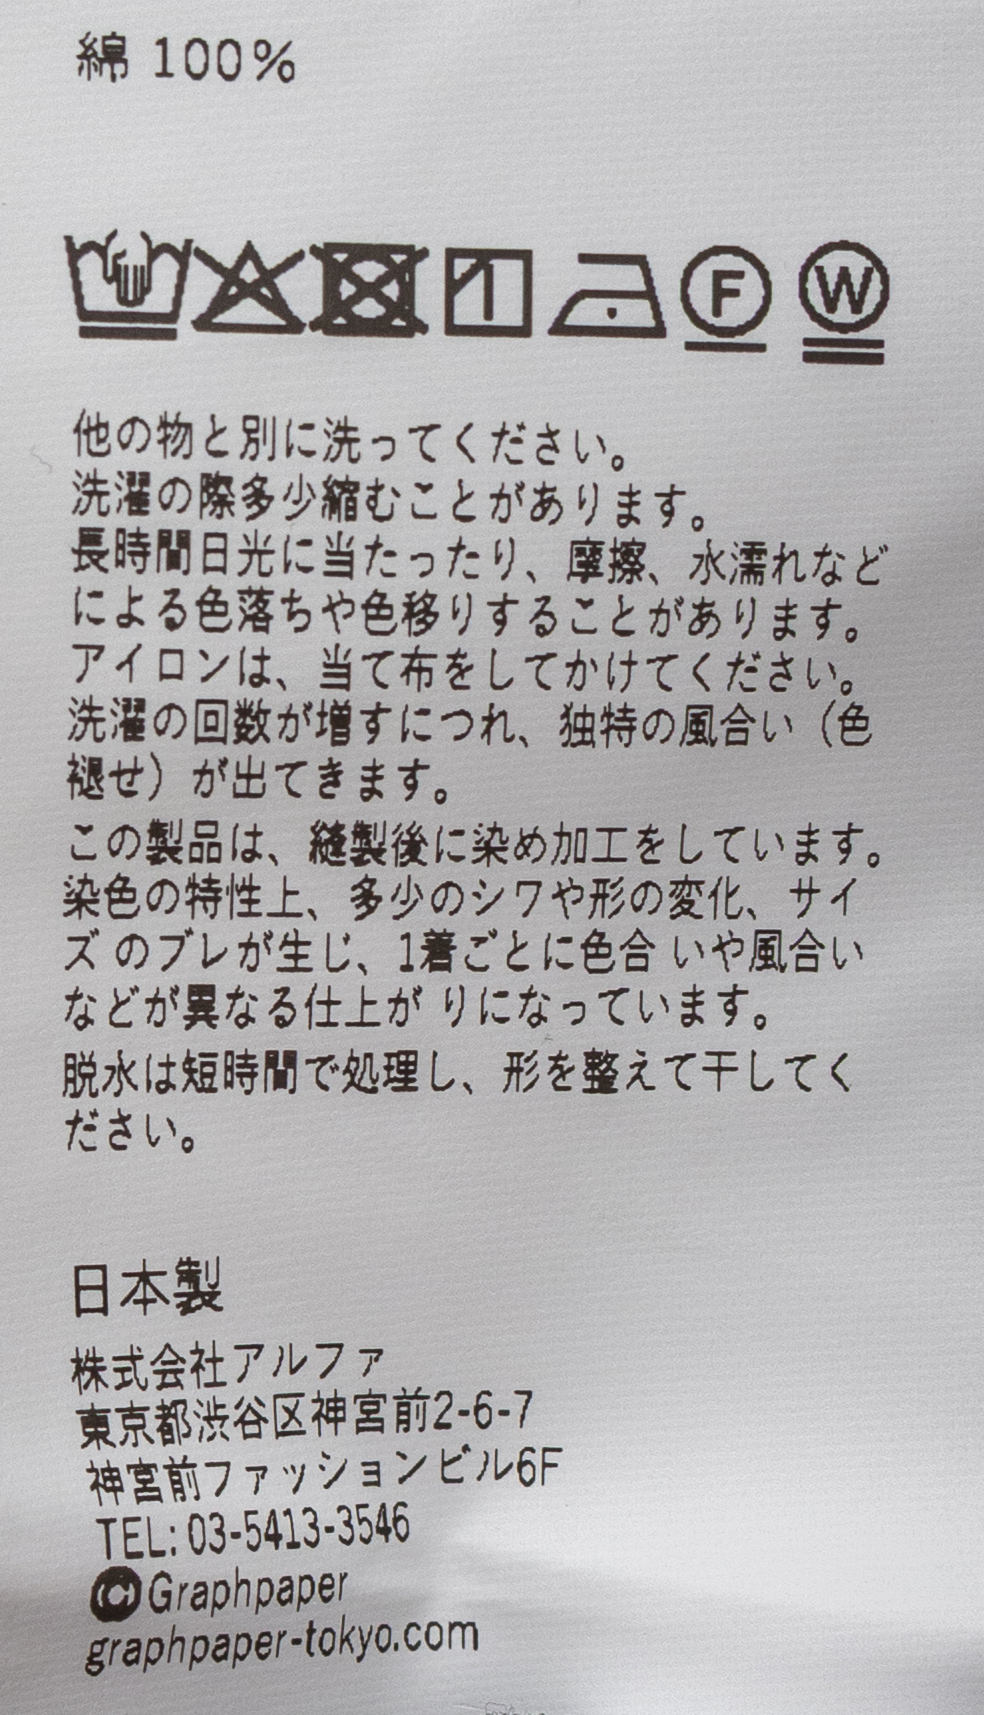 綿 100%
F W
他の物と別に洗ってください。
洗濯の際多少縮むことがあります。
長時間日光に当たったり、摩擦、水濡れなど
による色落ちや色移りすることがあります。
アイロンは、当て布をしてかけてください。
洗濯の回数が増すにつれ、独特の風合い（色
褪せ）が出てきます。
この製品は、縫製後に染め加工をしています。
染色の特性上、多少のシワや形の変化、サイ
ズ のブレが生じ、1着ごとに色合 いや風合い
などが異なる仕上が りになっています。
脱水は短時間で処理し、形を整えて干してく
ださい。
日本製
株式会社アルファ
東京都渋谷区神宮前2-6-7
神宮前ファッションビル6F
TEL: 03-5413-3546
Graphpaper
graphpaper-tokyo.com